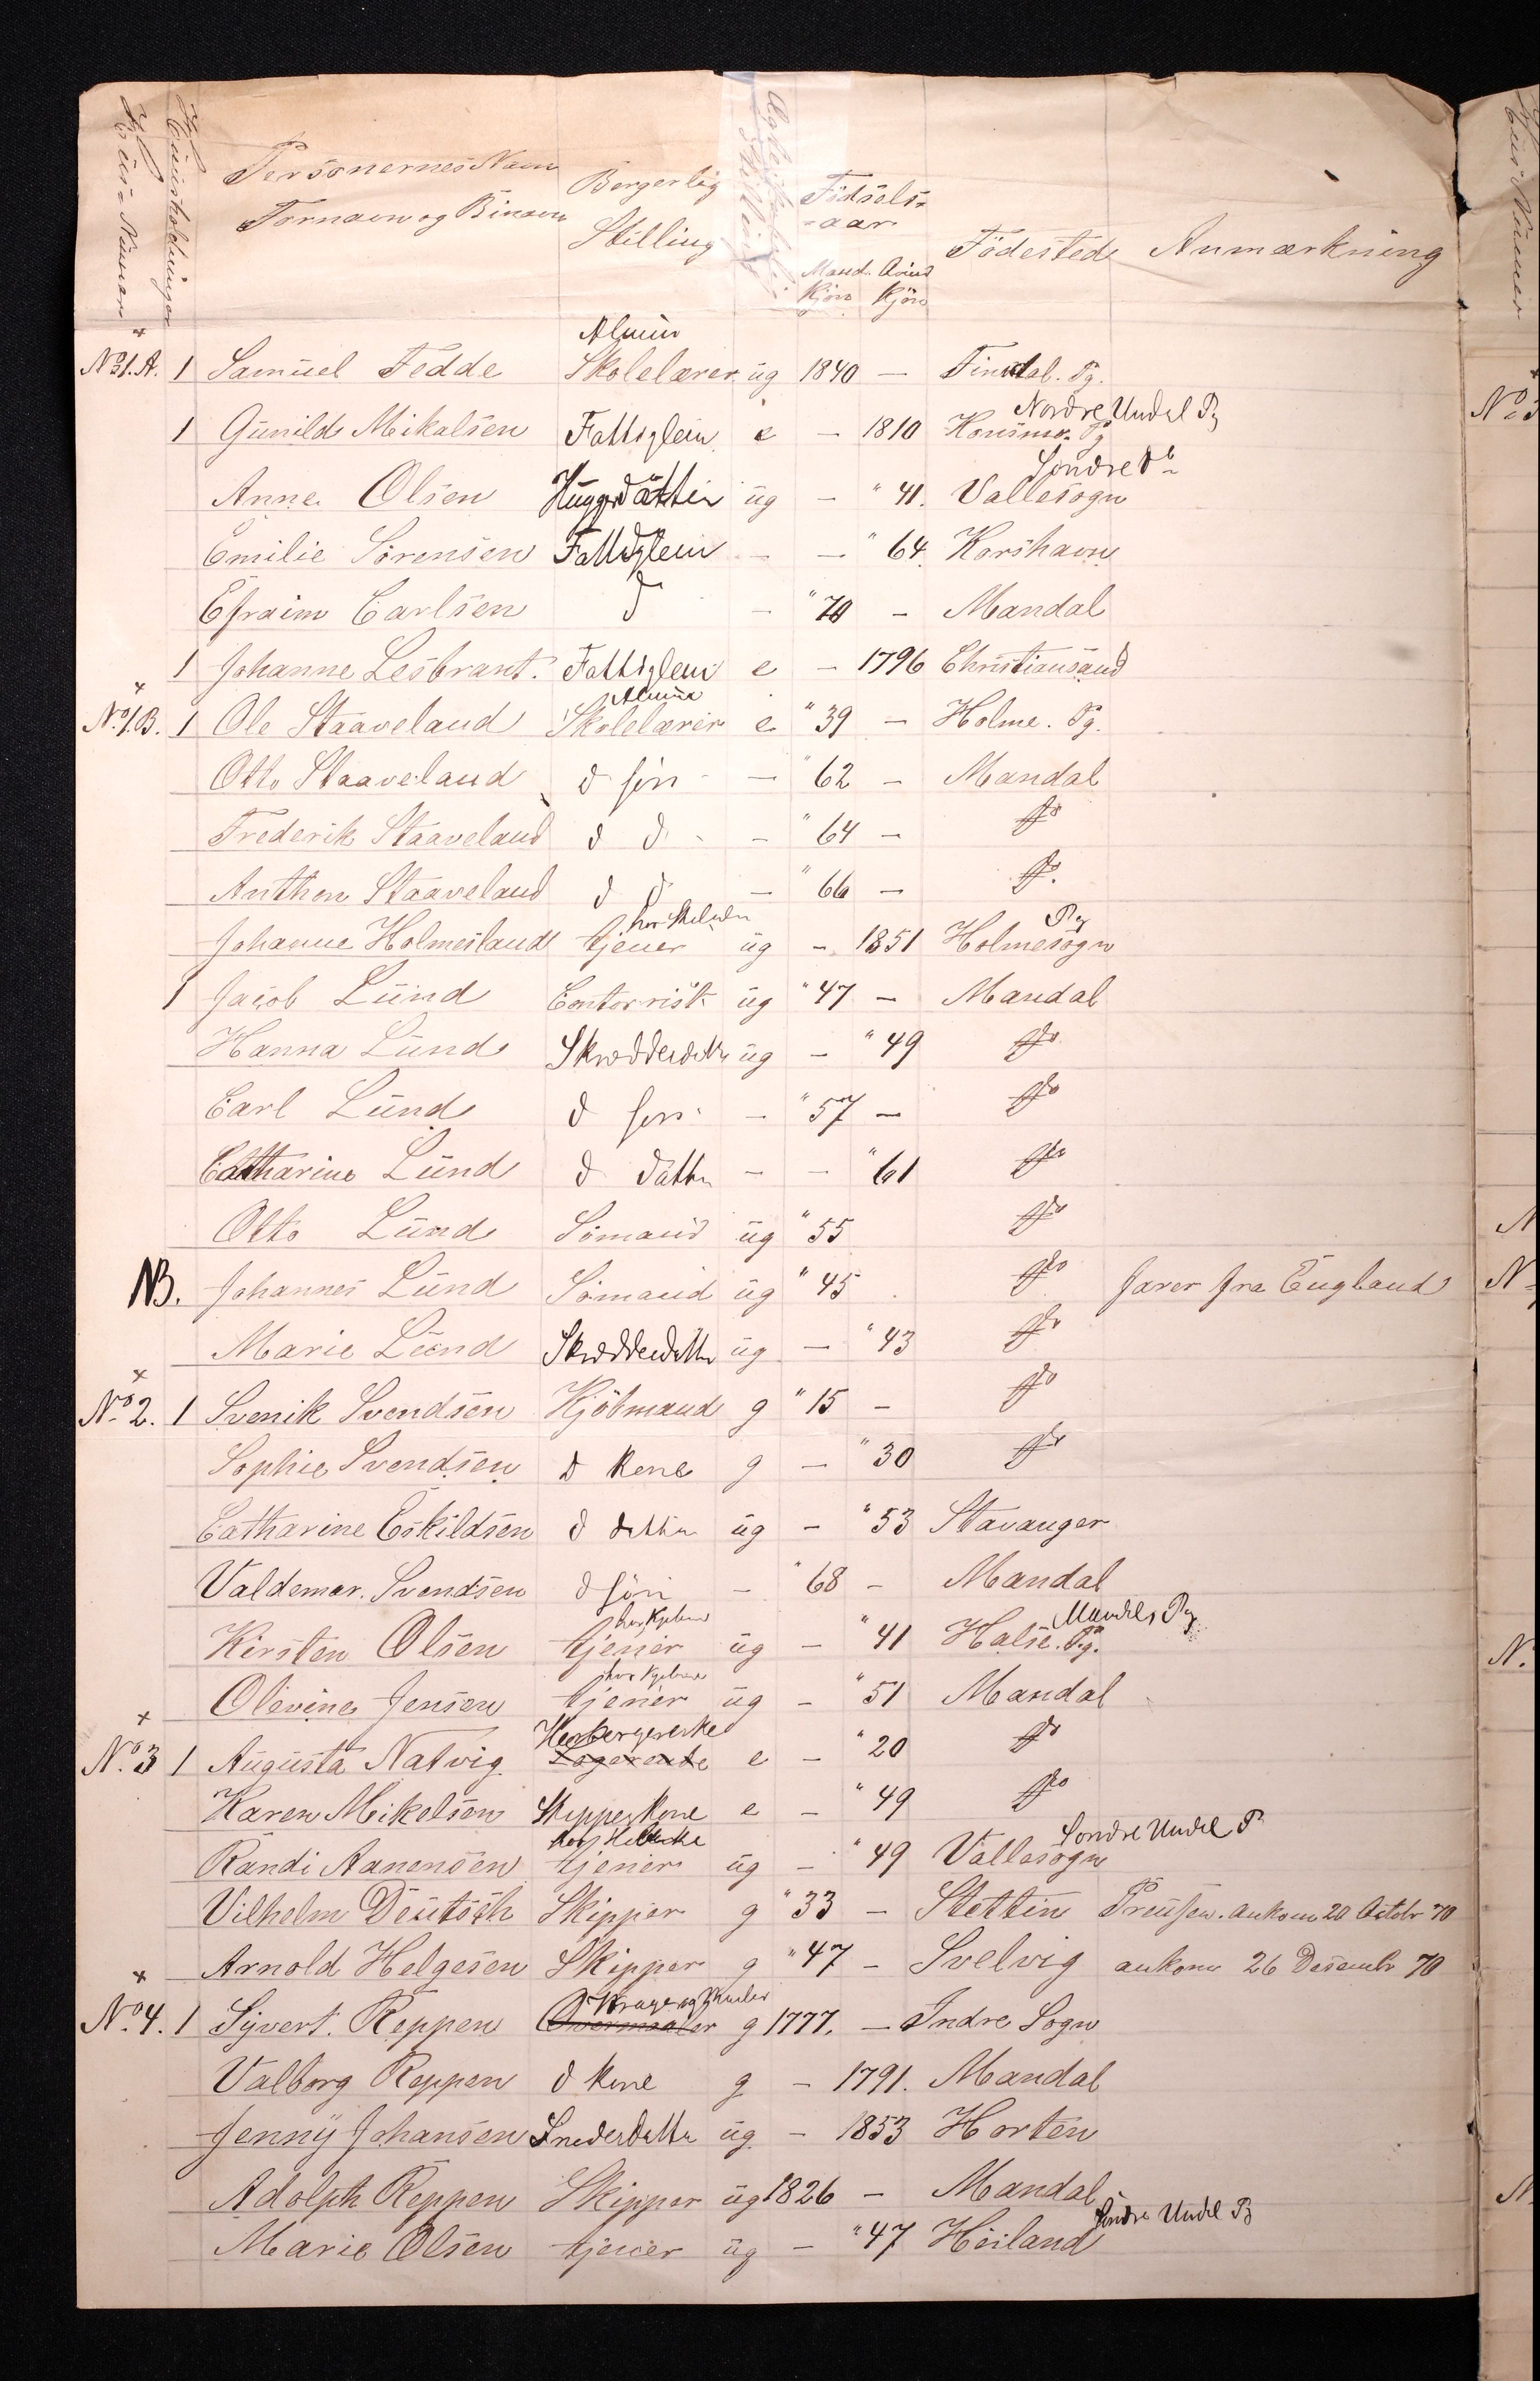 Personernes Navn Fornavn og Binavn Borgerlig Stilling Födsels-aar Mand Kjön Kjön Födested Anmærkning
No 1. A. 1 Samuel Fedde Almue Skolelærer ug 1840 — Pg.
1 Gunild Mikalsen Fattiglem e — 1810 Nordre Undal Pg
Anne Olsen ug — " 41. Vallesogn Söndre do
Emilie Sörensen Fattiglem — — " 64 Korshavn
Efraim Carlsen d — " 70 — Mandal
1 Johanne Lesbrant. Fattiglem e — 1796 Christiansand
No 1. B. 1 Ole Staaveland Almue Skolelærer e " 39 — Holme. Pg.
Otto Staaveland d sön — " 62 — Mandal
Frederik Staaveland d d - — " 64 — do
Anthon Staaveland d d — " 66 — do.
Johanne Holmesland tjener hos ug — 1851 Holmesogn Pg
1 Jacob Lund Contorrist ug " 47 — Mandal
Hanna Lund Skrædderdatter ug — " 49 do
Carl Lund d sön — " 57 — do
Catharine Lund d datter — — " 61 do
Otto Lund Sömand ug " 55 do
NB. Johannes Lund Sömand ug " 45 do farer fra England
Marie Lund Skrædderdatter ug — " 43 do
No 2. 1 Svenik Svendsen Kjöbmand g " 15 — do
Sophie Svendsen d Kone g — " 30 do
Catharine Eskildsen d datter ug — " 53 Stavanger
Valdemar. Svendsen d sön — " 68 — Mandal
Kirsten Olsen tjener hos Kjøbm ug — " 41 Halse. Pg. Mandals Pg
Olevine Jensen tjener hos Kjøbm ug — " 51 Mandal
No 3 1 Augusta Natvig Herbergererske Logerende e — " 20 do
Karen Mikelsen Skipperkone e — " 49 do
Randi Aanensen tjener hos ug — " 49 Vallesogn Söndre Undal P
Vilhelm Deutsch Skipper g " 33 — Stettin Preusen. ankom 20 Octobr 70
Arnold Helgesen Skipper g " 47 — Svelvig ankom 26 Desembr 70
No 4. 1 Syvert. Reppen g 1777. — Indre Sogn
Valborg Reppen d Kone g — 1791. Mandal
Jenny Johansen ug — 1853 Horten
Adolph Reppen Skipper ug 1826 — Mandal
Marie Olsen tjener ug — " 47 Höiland Söndre Undal Pg